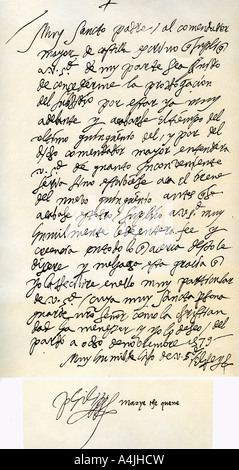 Muy Sancto padre / al comendador
mayor de castilla scrivo q supliq
a v. s.d de my parte sea servido
de concederme la prorrogacion
del subsidio por estar ya muy
adelante y acabarse el tiempo del
ultimo quinquenio del, y por del
dicho comendador mayor entendera
v. s.d de quanto inconveniente
seria sino estubiese aca el breve
del nuevo quinquenio antes q se
acabase este supplico a v. s.d muy
humilmente le de entera fee y
creencia en todo lo q acerca desto le
dixere y me haga esta gracia q
yo la rescivire en ello muy particular
de v. s.d / cuya muy Sancta persona
guarde nro señor como la christian
dad ya menester y yo lo deseo, del
pardo a de noviembre 1573
Muy humilde hijo de v. s.d el Rey
alamy
A4JHCW